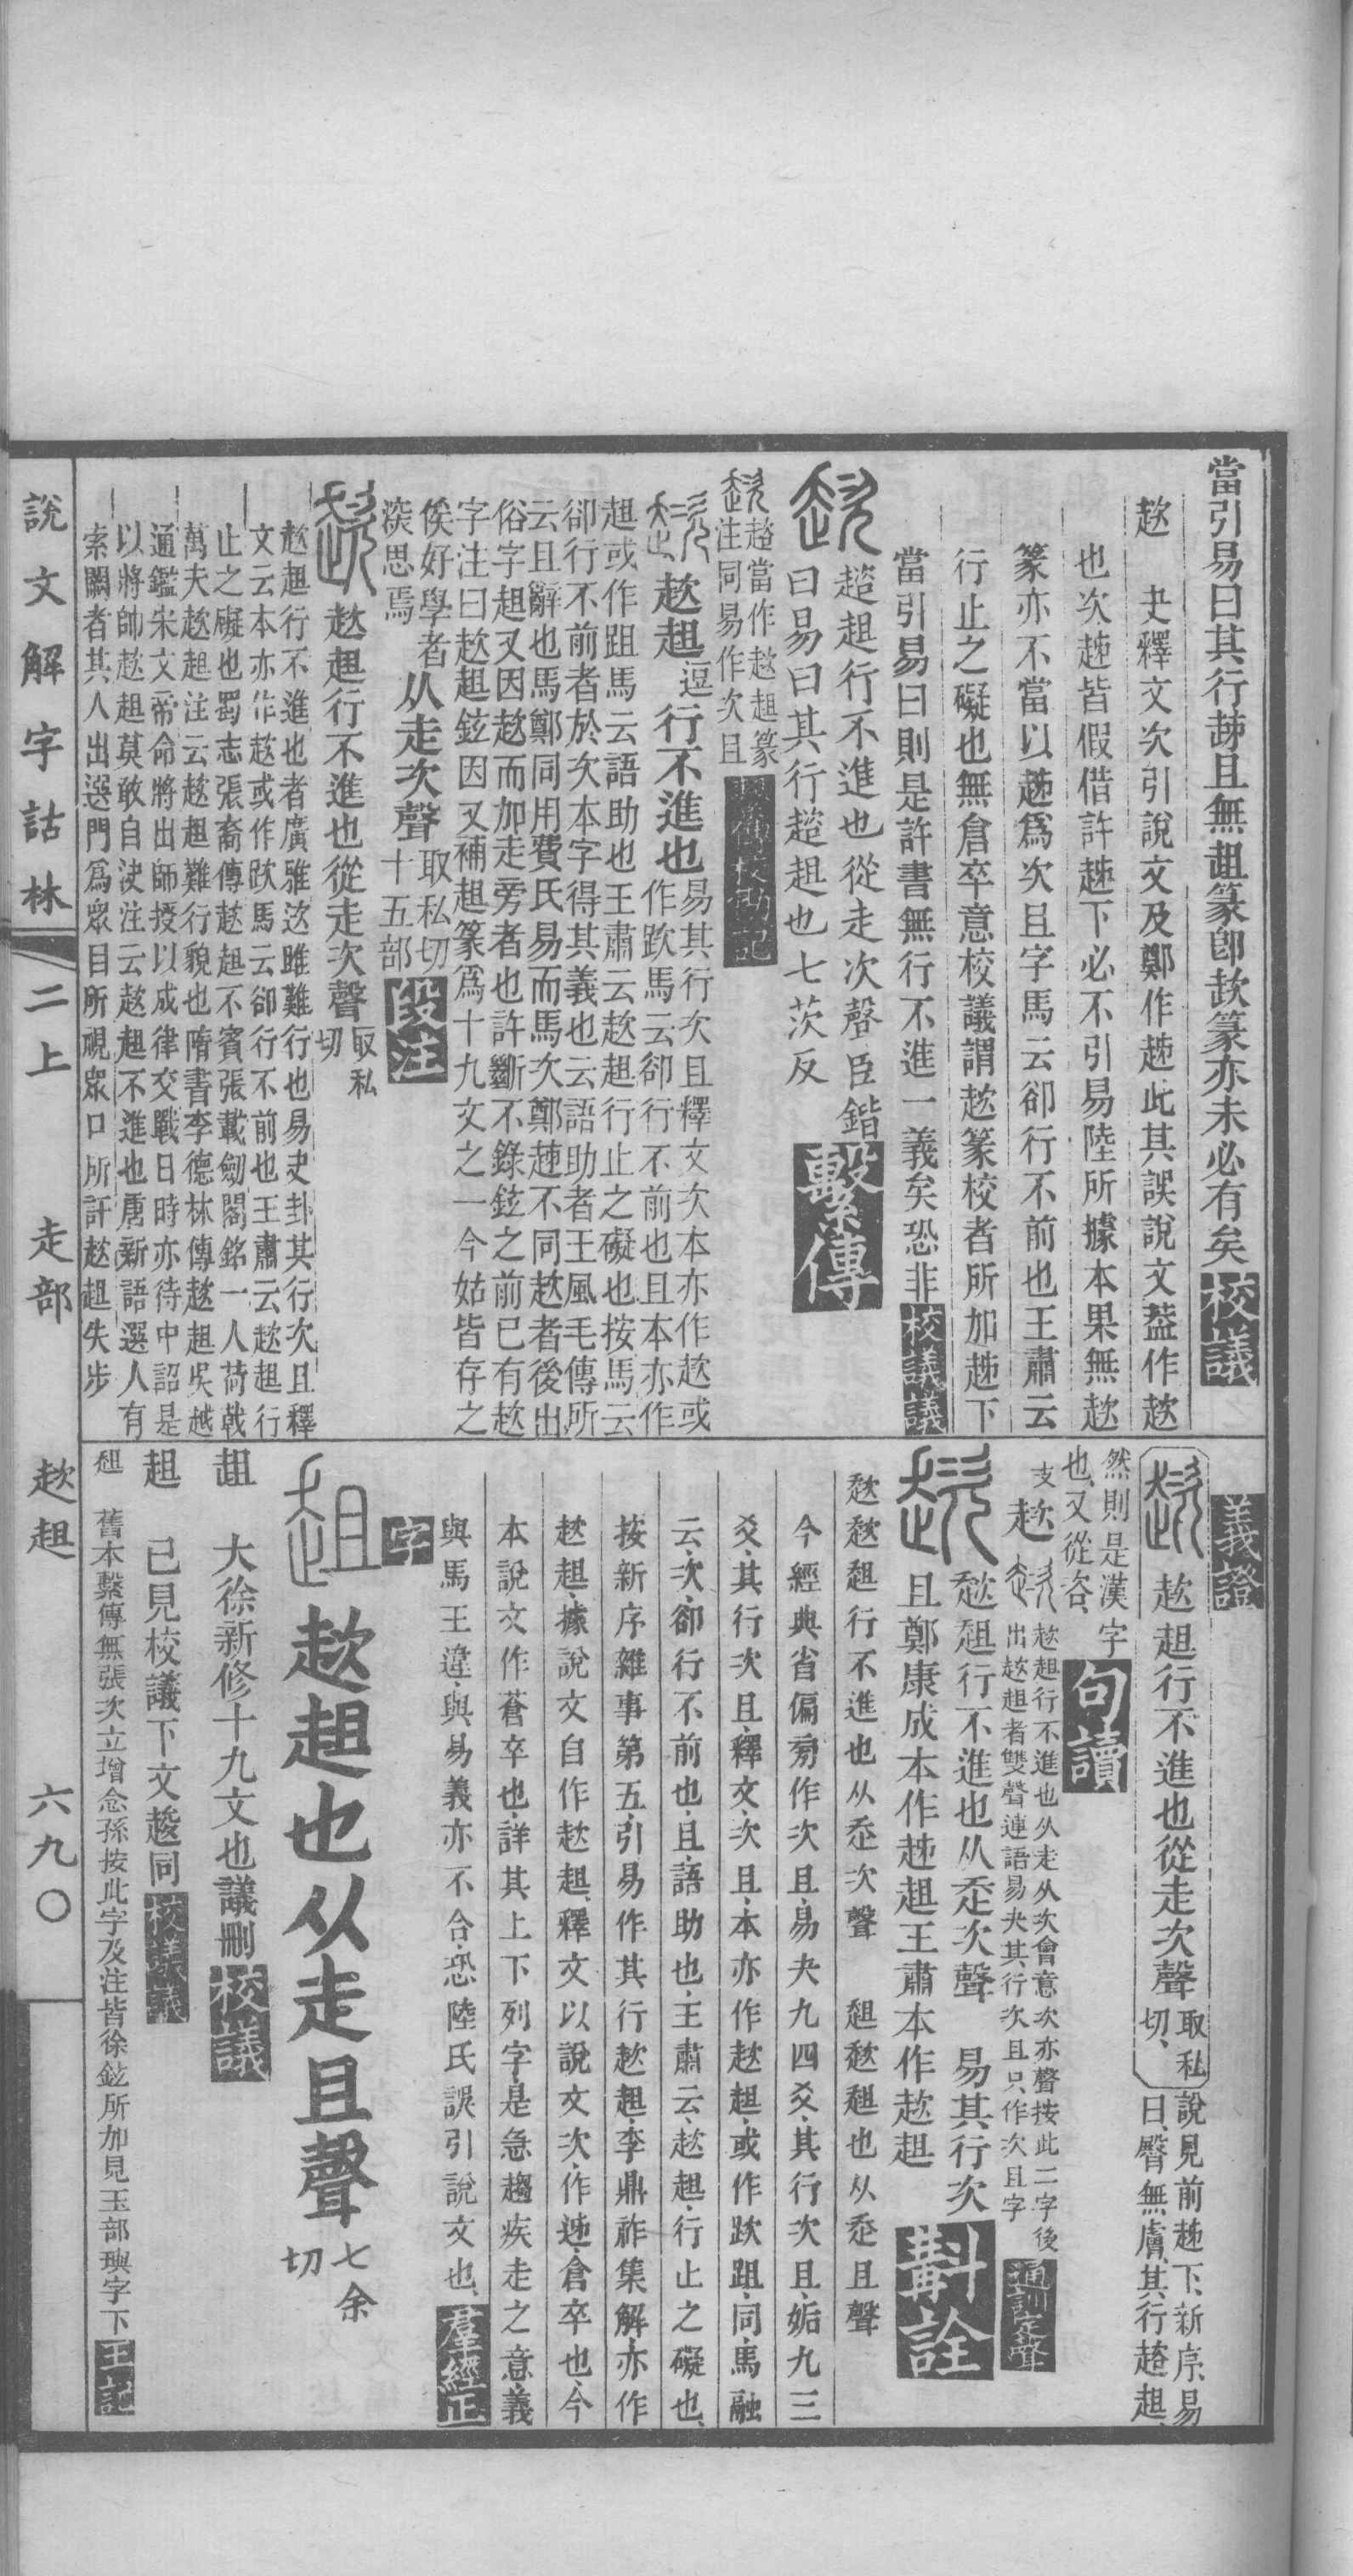 當引易曰其行趀且無趄篆卽趑篆亦未必有矣 校議
趑 夬釋文次引說文及鄭作趀此其誤說文葢作趑
也次趀皆假借許趀下必不引易陸所據本果無趑
篆亦不當以趀爲次且字馬云卻行不前也王肅云
行止之礙也無倉卒意校議謂趑篆校者所加趀下
當引易曰則是許書無行不進一義矣恐非 校議議
趦趄行不進也從走次聲臣鍇
曰易曰其行趦趄也七茨反 繫傳
趦當作趑趄篆
注同易作次且 繫傳校勘記
趑趄逗行不進也 易其行次且釋文次本亦作趑或
作跂馬云卻行不前也且本亦作
趄或作跙馬云語助也王肅云趑趄行止之礙也按馬云
卻行不前者於次本字得其義也云語助者王風毛傳所
云且辭也馬鄭同用費氏易而馬次鄭趀不同趑者後出
俗字趄又因趑而加走旁者也許斷不錄鉉之前已有趑
字注曰趑趄鉉因又補趄篆爲十九文之一今姑皆存之
俟好學者
深思焉 从走次聲 取私切
十五部 段注
趑趄行不進也從走次聲 取私
切
趑趄行不進也者廣雅趑雎難行也易夬卦其行次且釋
文云本亦作趑或作跂馬云卻行不前也王肅云趑趄行
止之礙也蜀志張裔傳趑趄不賓張載劒閣銘一人荷戟
萬夫趑趄注云趑趄難行貌也隋書李德林傳趑趄吳越
通鑑宋文帝命將出師授以成律交戰日時亦待中詔是
以將帥趑趄莫敢自決注云趑趄不進也唐新語選人有
索闕者其人出選門爲眾目所視眾口所訐趑趄失步
義證
趑趄行不進也從走次聲 取私
切 說見前趀下新序易
曰臀無膚其行趦趄
然則是漢字
也又從咨 句讀
支 趑 趑趄行不進也从走从次會意次亦聲按此二字後
出趑趄者雙聲連語易夬其行次且只作次且字 通訓定聲
趑趄行不進也从走次聲 易其行次
且鄭康成本作趀趄王肅本作趑趄 斠詮
趑趑趄行不進也从走次聲 趄趑趄也从走且聲
今經典省偏旁作次且易夬九四爻其行次且姤九三
爻其行次且釋文次且本亦作趑趄或作跂跙同馬融
云次卻行不前也且語助也王肅云趑趄行止之礙也
按新序雜事第五引易作其行趑趄李鼎祚集解亦作
趑趄據說文自作趑趄釋文以說文次作趀倉卒也今
本說文作蒼卒也詳其上下列字是急趨疾走之意義
與馬王違與易義亦不合恐陸氏誤引說文也 羣經正
字
趑趄也从走且聲 七余
切
趄 大徐新修十九文也議刪 校議
趄 已見校議下文趦同 校議議
趄 舊本繫傳無張次立增念孫按此字及注皆徐鉉所加見玉部璵字下 王記
說文解字詁林 二上 走部 趑趄 六九〇